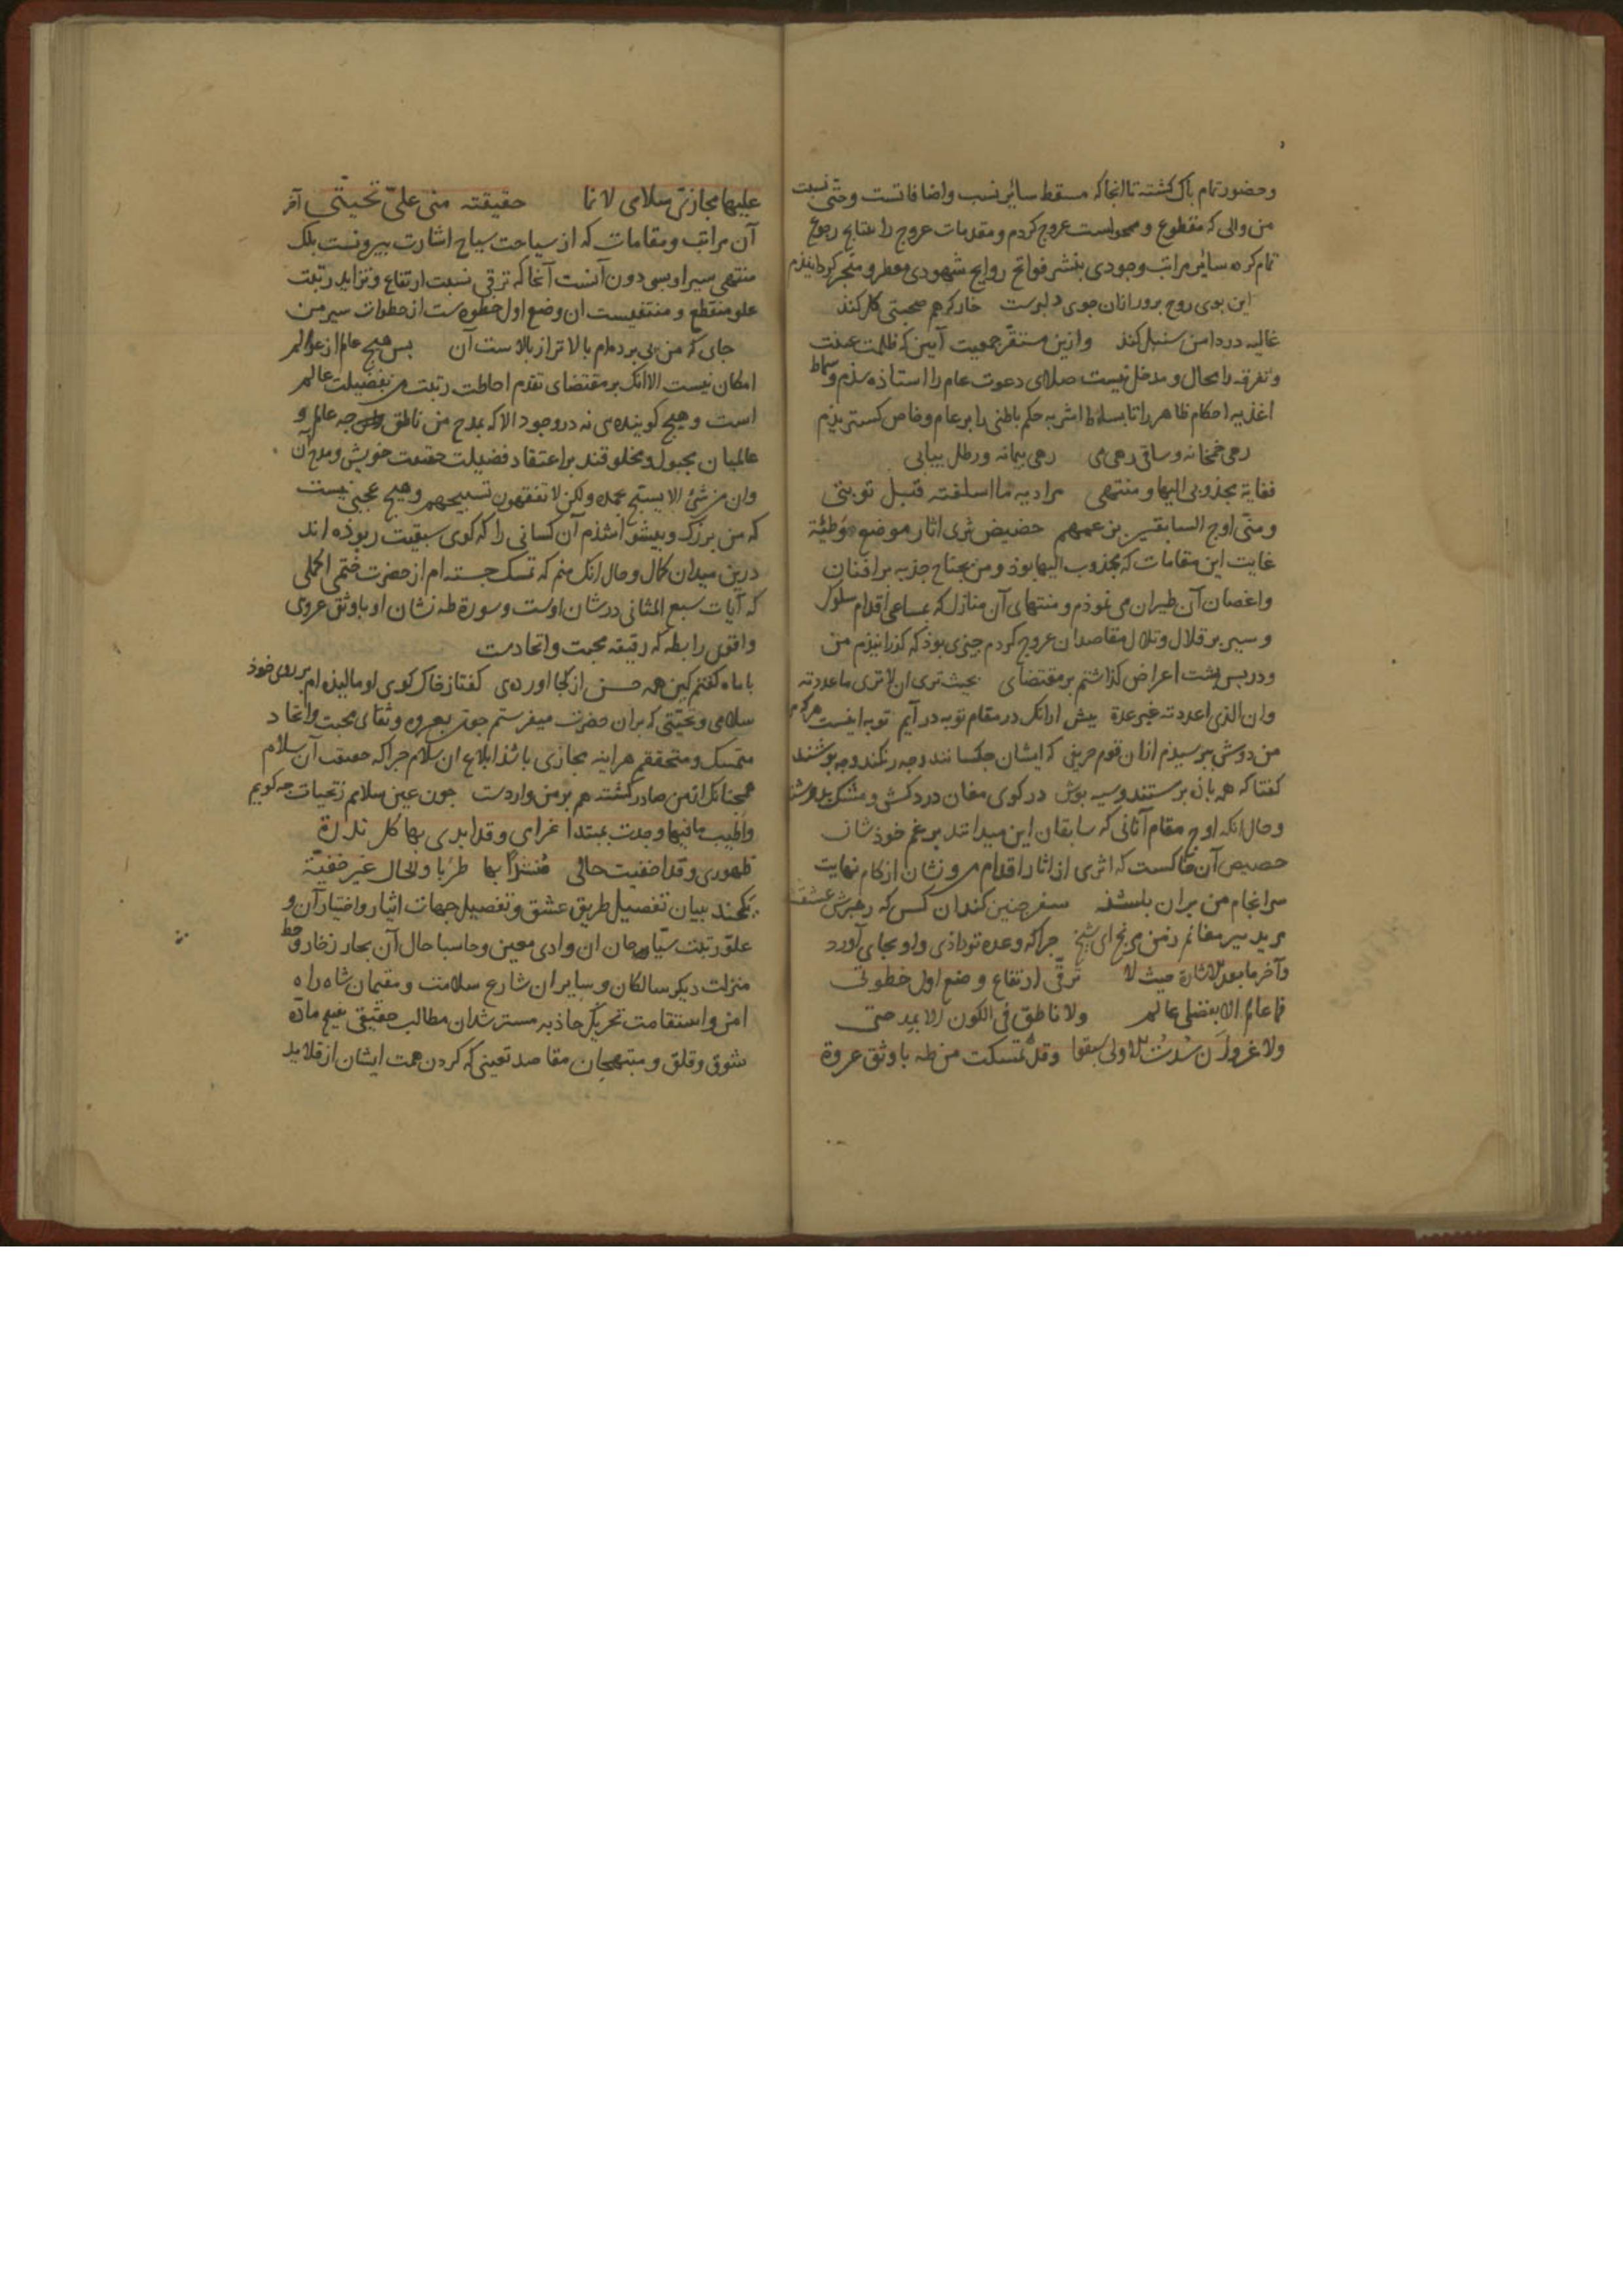 وحضور تمام پاک کشته تا انجا که مسقط سائر نسب واضافاتست وحتی نسبت
من والی که مقطوع و محواست عروج کردم و مقدمات عروج را بنتایج رجوع
تمام کرده سائر مراتب وجودی بنشر فواتح روایح شهودی معطر و متبخر کردانیدم
این بوی روح پرور ازان جوی دلبرست خار کرهم صحبتی کل کند
غالیه در دامن سنبل کند وازین مستقر جمعیت آیین که ظلمت
وتفرقه را مجال و مدخل نیست صلای دعوت عام را استاذه شذم وسماط
اغذیه احکام ظاهر را تا بساط اشربه حکم باطنی را بر عام وخاص کسترینم
زهی خمخانه وساقی زهی می زهی پیمانه ورطل بیابی
فغایة مجذوبی الیها ومنتهی مرادیه ما اسلفته قبل توبتی
ومنی اوج السابقین بزعمهم حضیض ثری اثار موضع وطئة
غایت این مقامات که مجذوب الیها بوذ ومن بجناح جذبه بر افنان
واغصان آن طیران می نموذم ومنتهای آن منازل که بمساعی اقدام سلوک
وسیر بر قلال وتلال مقاصد ان عروج کردم چیزی بوذ که کذرانیذم من
ودر پس پشت اعراض کذاشتم بر مقتضای بحیث تری ان لا تری ما عددته
وان الذی اعددته غیر عدة پیش ازانک در مقام توبه در آیم توبه اینست
من دوش بپرسیدم ازان قوم حریفی که ایشان چکسانند وچه رنکند وچه پوشند
کفتا که همه باذه پرستند وسیه پوش در کوی مغان دردکش و
وحال انکه اوج مقام آنانی که سابقان این میدانند بر غم خوذ شان
حضیض آن خاکست که اثری از اثار اقدام من ونشان از کام نهایت
سرانجام من بران سفر چنین کند ان کس که رهبرش عشقست
مرید پیر مغانم ز من مرنج ای شیخ چرا که وعده تو داذی و او بجای آورد
وآخر ما بعد الاشارة حیث لا ترقی ارتفاع وضع اول خطوتی
فما عالم الا بفضلی عالم ولا ناطق فی الکون الا بمدحتی
ولا غرو ان سدت الاولی سبقوا وقد تمسکت من طه باوثق عروة
علیها مجازی سلامی لانما حقیقته منی علی تحیتی آخر
آن مراتب ومقامات که از سیاحت سیاح اشارت بیرونست بلک
منتهی سیر او بسی دون آنست آنجا که ترقی نسبت ارتفاع وتزاید رتبت
علو منقطع و منتفیست ان وضع اول خطوه ست از خطوات سیر من
جای که من پی برده ام بالاتر از بالاست آن پس هیچ عالم از عوالم
امکان نیست الا انک بر مقتضای تقدم احاطت رتبت من بفضیلت عالم
است وهیچ کوینده ی نه در وجود الا که بمدح من ناطق چه عالم و
عالمیان مجبول و مخلوقند بر اعتقاد فضیلت حقیقت خویش ومدح آن
وان من شئ الا یسبح بحمده ولکن لا تفقهون تسبیحهم وهیچ عجبی نیست
که من بزرک وپیشوا شذم آن کسانی را که کوی سبقیت ربوده اند
درین میدان کمال وحال انک منم که تمسک جسته ام از حضرت ختمی اکملی
که آیات سبع المثانی در شان اوست وسوره طه نشان او باوثق عروتی
واقوی رابطه که رقیقه محبت واتحادست
با ماه کفتم کین همه حسن از کجا اورده ی کفتا ز خاک کوی او مالیذه ام بر روی خوذ
سلامی وتحیتی که بران حضرت میفرستم چون بعروه وثقای محبت واتحاد
متمسک ومتحققم هراینه مجازی باشذ ابلاغ ان سلام چرا که حقیقت آن سلام
همچنانک از من صادر کشته هم بر من واردست چون عین سلامم ز تحیات چه کویم
واطیب ما فیها وجدت بمبتدا غرامی وقد ابدی بها کل ندرة
ظهوری وقد اخفیت حالی منشدا بها طربا والحال غیر خفیّة
یکچند بیان تفصیل طریق عشق وتفصیل جهات ایثار واختیار آن و
علو رتبت سیاحان ان وادی معین وحاسبا حال آن بحار زخار وحط
منزلت دیکر سالکان وسایران شارع سلامت ومقیمان شاه راه
امن واستقامت تحریک جاذبه مسترشدان مطالب حقیقی تهییج ماده
شوق وقلق و مقاصد تعینی که کردن همت ایشان از قلاید